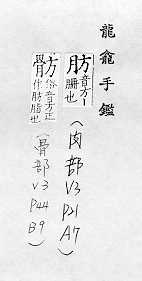 龍龕手鑑
肪音方
也
(肉部V3P21A7)
俗音方正
作肪脂也
(骨部V3P44B9)